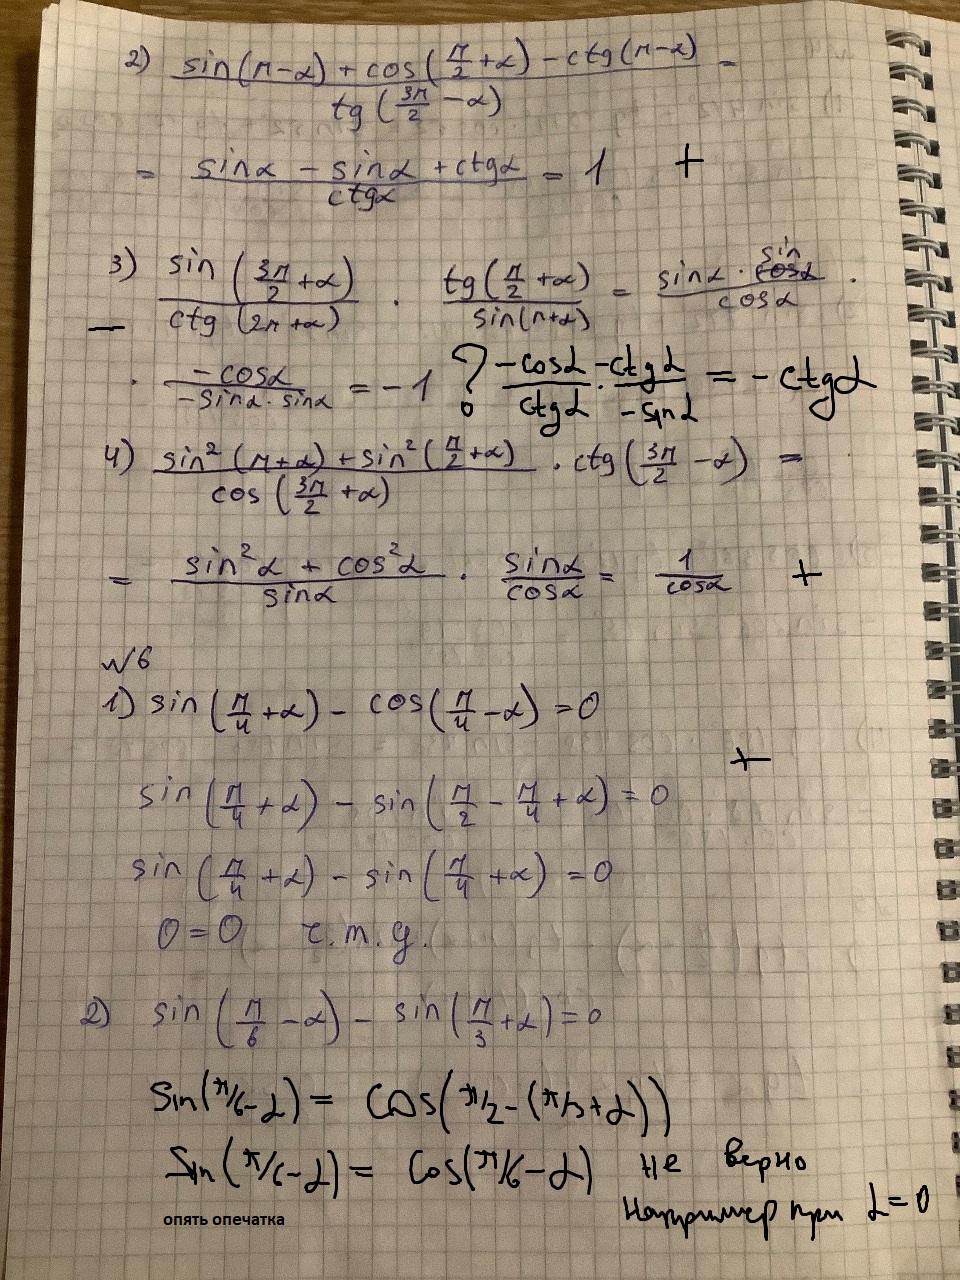 2) (sin(π-α) + cos(π/2 +α) - ctg(π-α)) / tg(3π/2 -α) =
= (sinα - sinα + ctgα) / ctgα = 1 +
3) sin(3π/2 +α) / ctg(2π+α) · tg(π/2 +α) / sin(π+α) = sinα · sin / cosα ·
— · -cosα / (-sinα · sinα) = -1 ? -cosα / ctgα · -ctgα / -sinα = -ctgα
4) (sin²(π+α) + sin²(π/2 +α)) / cos(3π/2 +α) · ctg(3π/2 -α) =
= (sin²α + cos²α) / sinα · sinα / cosα = 1 / cosα +
№6
1) sin(π/4 +α) - cos(π/4 -α) = 0
+
sin(π/4 +α) - sin(π/2 - π/4 +α) = 0
sin(π/4 +α) - sin(π/4 +α) = 0
0=0 ч.т.д.
2) sin(π/6 -α) - sin(π/3 +α) = 0
Sin(π/6-α) = cos(π/2-(π/3+α))
Sin(π/6-α) = cos(π/6-α) не верно
Например при α=0
опять опечатка